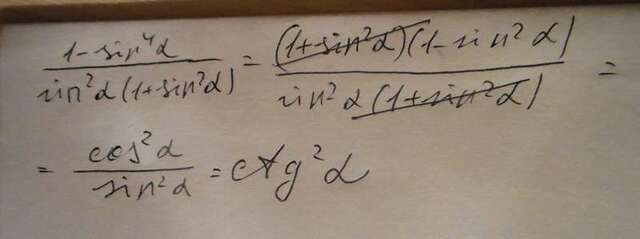 (1-sin⁴α)/(sin²α(1+sin²α)) = ((1+sin²α)(1-sin²α))/(sin²α(1+sin²α)) =
= cos²α/sin²α = ctg²α